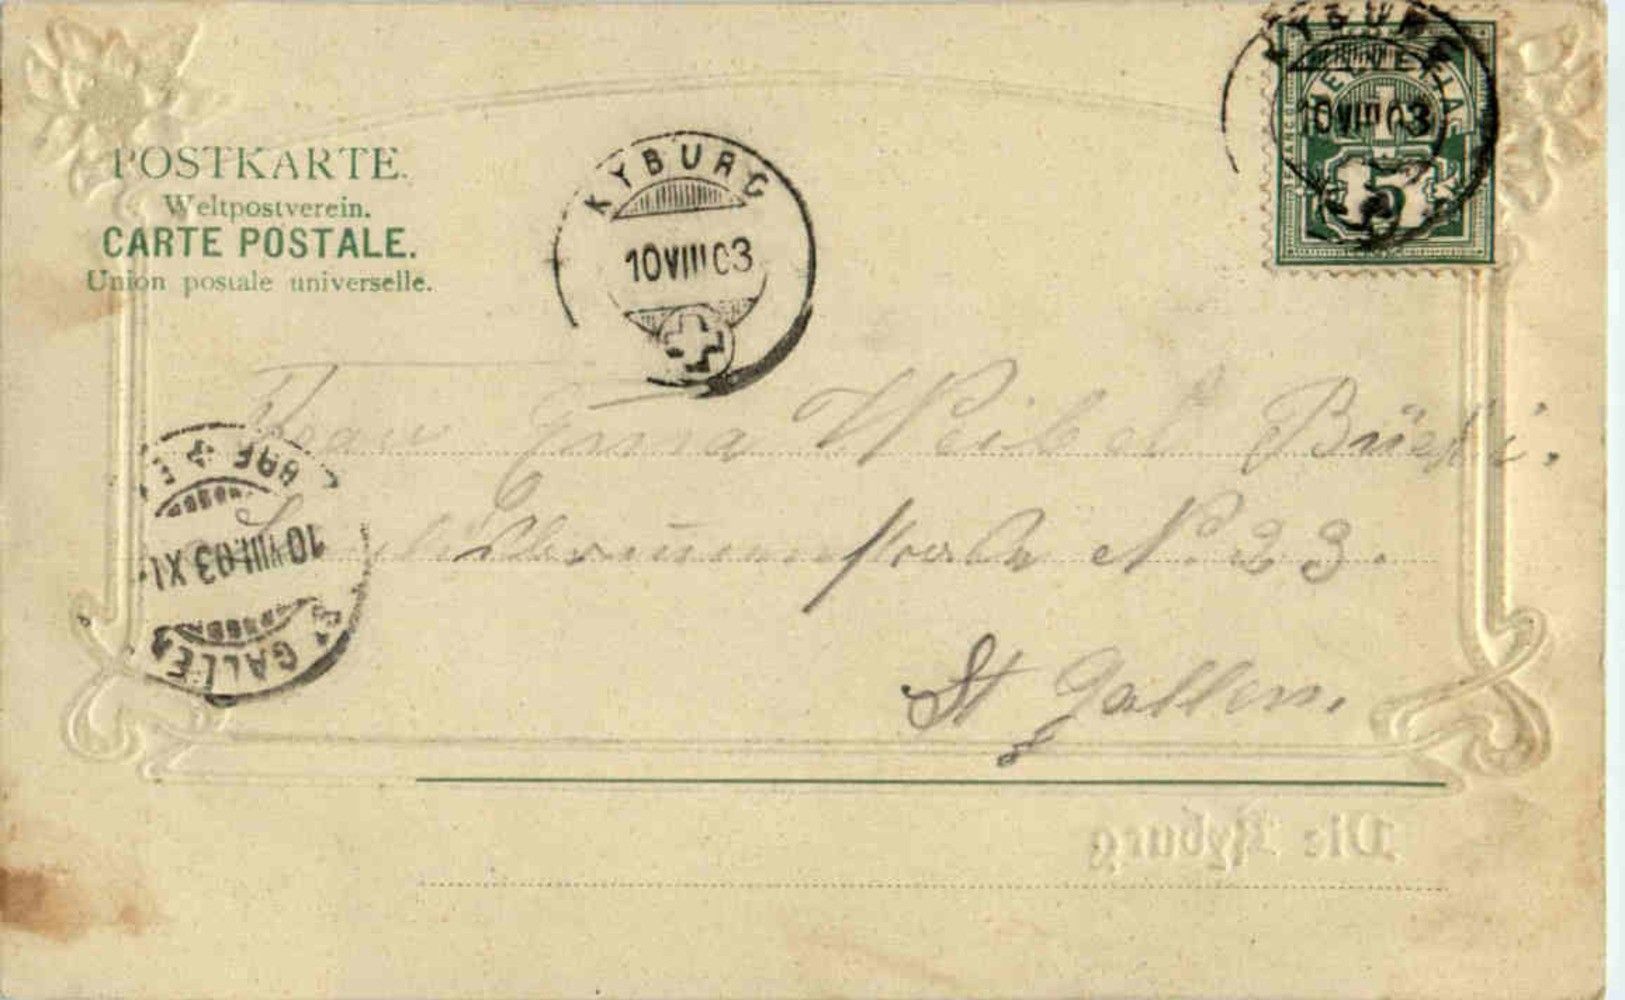 POSTKARTE.
Weltpostverein.
CARTE POSTALE.
Union postale universelle.
KYBURG
10 VIII 03
KYBURG
10 VIII 03
HELVETIA
FRANCO
5
Frau Emma Weibel
N. 23.
St Gallen.
ST GALLEN
10 VIII 03 XI
Die Kyburg